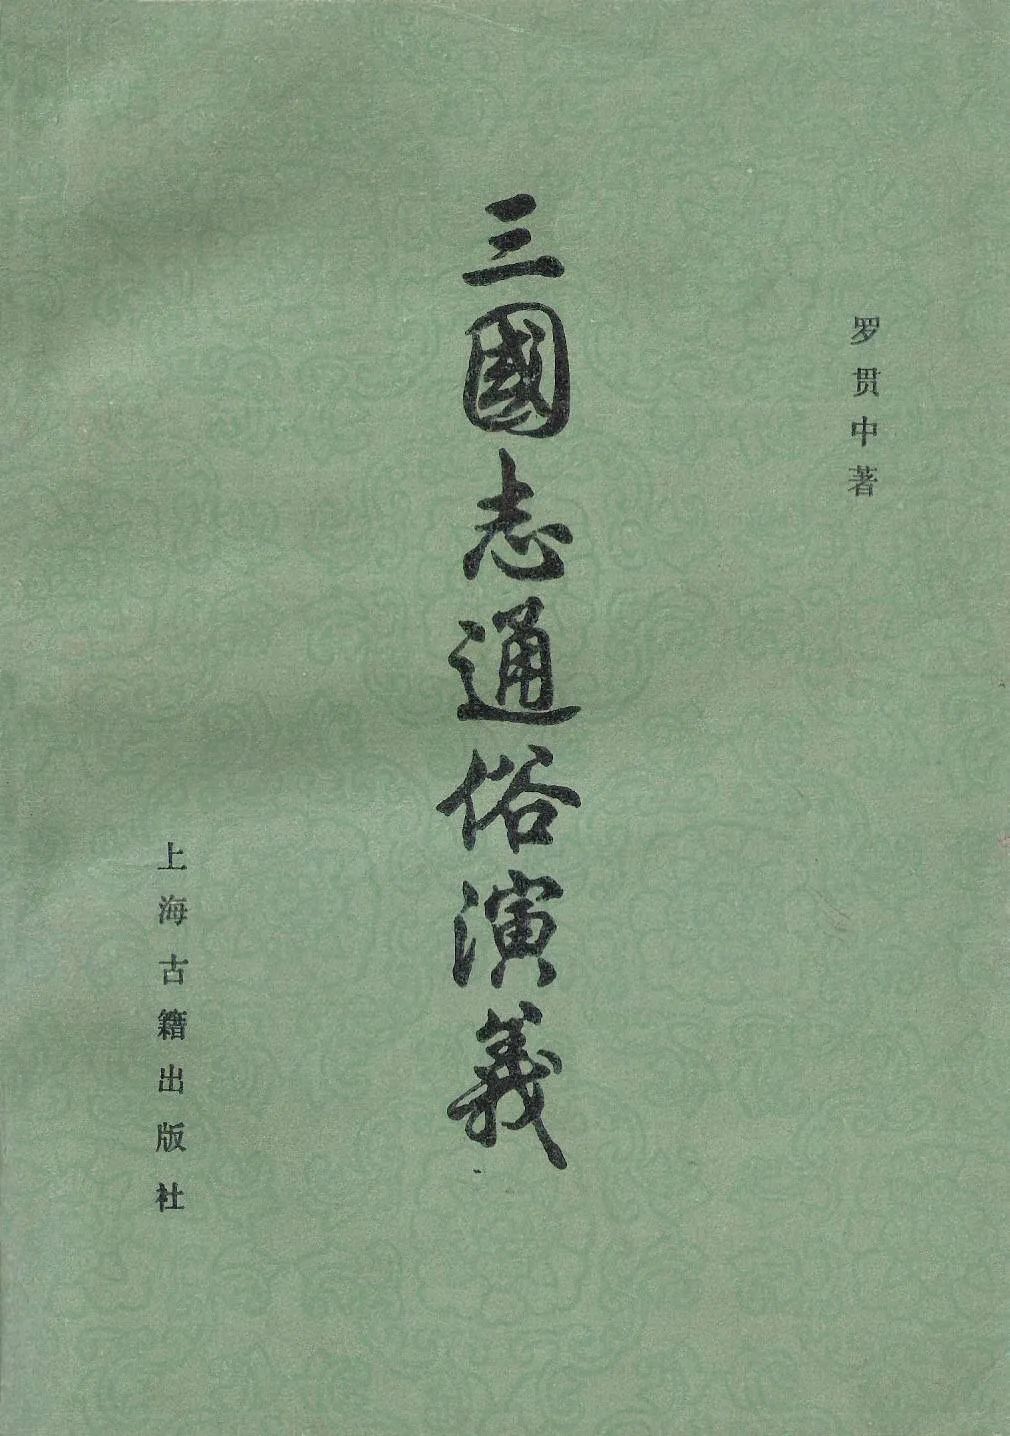 罗贯中著
三國志通俗演義
上海古籍出版社